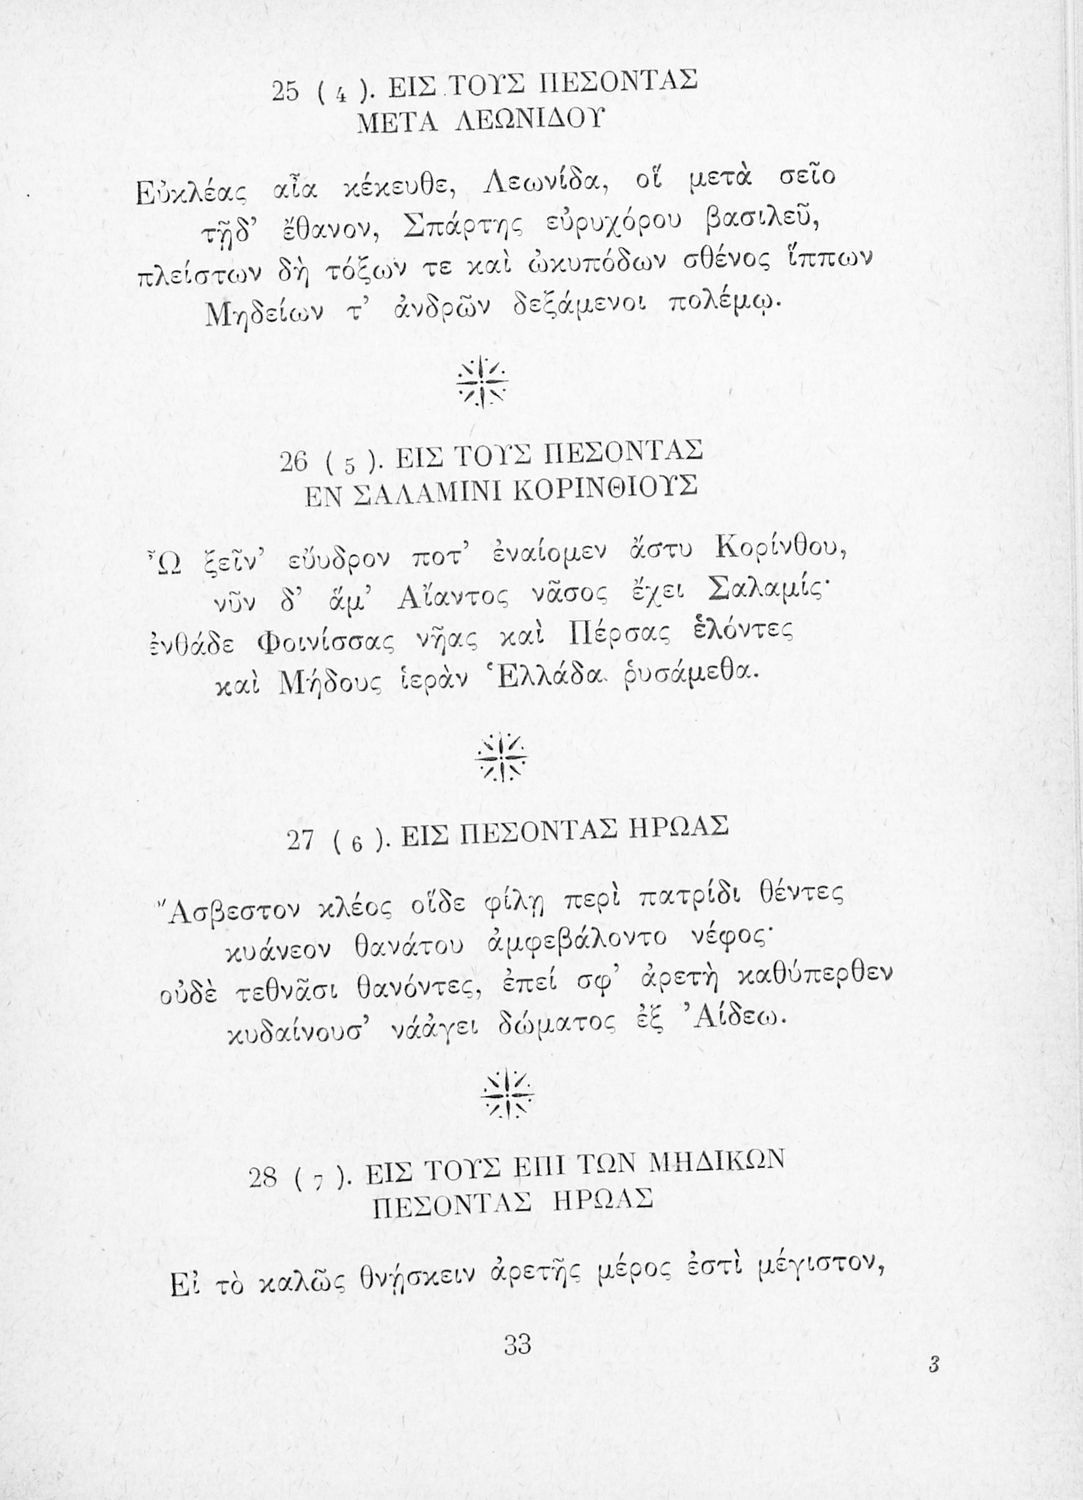 25 ( 4 ). ΕΙΣ ΤΟΥΣ ΠΕΣΟΝΤΑΣ
ΜΕΤΑ ΛΕΩΝΙΔΟΥ
Εὐκλέας αἶα κέκευθε, Λεωνίδα, οἳ μετὰ σεῖο
τῇδ’ ἔθανον, Σπάρτης εὐρυχόρου βασιλεῦ,
πλείστων δὴ τόξων τε καὶ ὠκυπόδων σθένος ἵππων
Μηδείων τ’ ἀνδρῶν δεξάμενοι πολέμῳ.
26 ( 5 ). ΕΙΣ ΤΟΥΣ ΠΕΣΟΝΤΑΣ
ΕΝ ΣΑΛΑΜΙΝΙ ΚΟΡΙΝΘΙΟΥΣ
Ὦ ξεῖν’ εὔυδρον ποτ’ ἐναίομεν ἄστυ Κορίνθου,
νῦν δ’ ἅμ’ Αἴαντος νᾶσος ἔχει Σαλαμίς·
ἐνθάδε Φοινίσσας νῆας καὶ Πέρσας ἑλόντες
καὶ Μήδους ἱερὰν Ἑλλάδα ῥυσάμεθα.
27 ( 6 ). ΕΙΣ ΠΕΣΟΝΤΑΣ ΗΡΩΑΣ
Ἄσβεστον κλέος οἵδε φίλῃ περὶ πατρίδι θέντες
κυάνεον θανάτου ἀμφεβάλοντο νέφος·
οὐδὲ τεθνᾶσι θανόντες, ἐπεί σφ’ ἀρετὴ καθύπερθεν
κυδαίνουσ’ νάἀγει δώματος ἐξ Ἀίδεω.
28 ( 7 ). ΕΙΣ ΤΟΥΣ ΕΠΙ ΤΩΝ ΜΗΔΙΚΩΝ
ΠΕΣΟΝΤΑΣ ΗΡΩΑΣ
Εἰ τὸ καλῶς θνῄσκειν ἀρετῆς μέρος ἐστὶ μέγιστον,
33
3